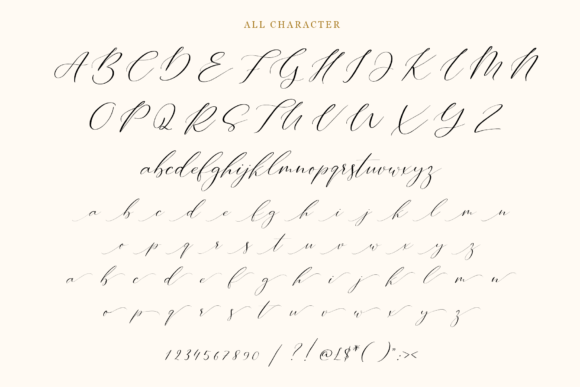 ALL CHARACTER
A B C D E F G H I J K L M N
O P Q R S T U V W X Y Z
abcdefghijklmnopqrstuvwxyz
a b c d e f g h i j k l m n
o p q r s t u v w x y z
a b c d e f g h i j k l m n
o p q r s t u v w x y z
1234567890 / ?! @[$*( )":><